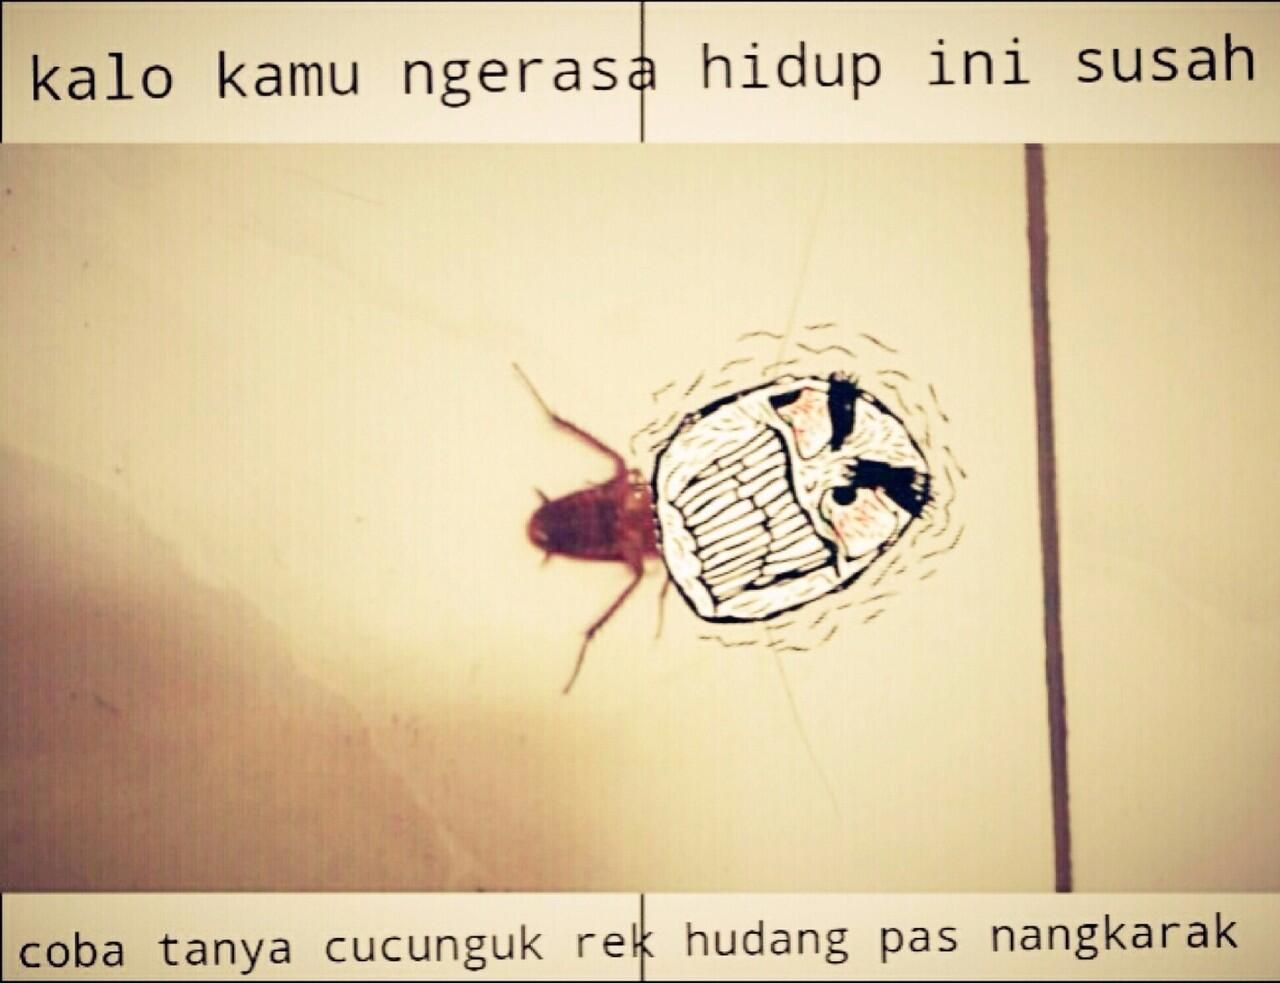 kalo kamu ngerasa hidup ini susah
coba tanya cucunguk rek hudang pas nangkarak